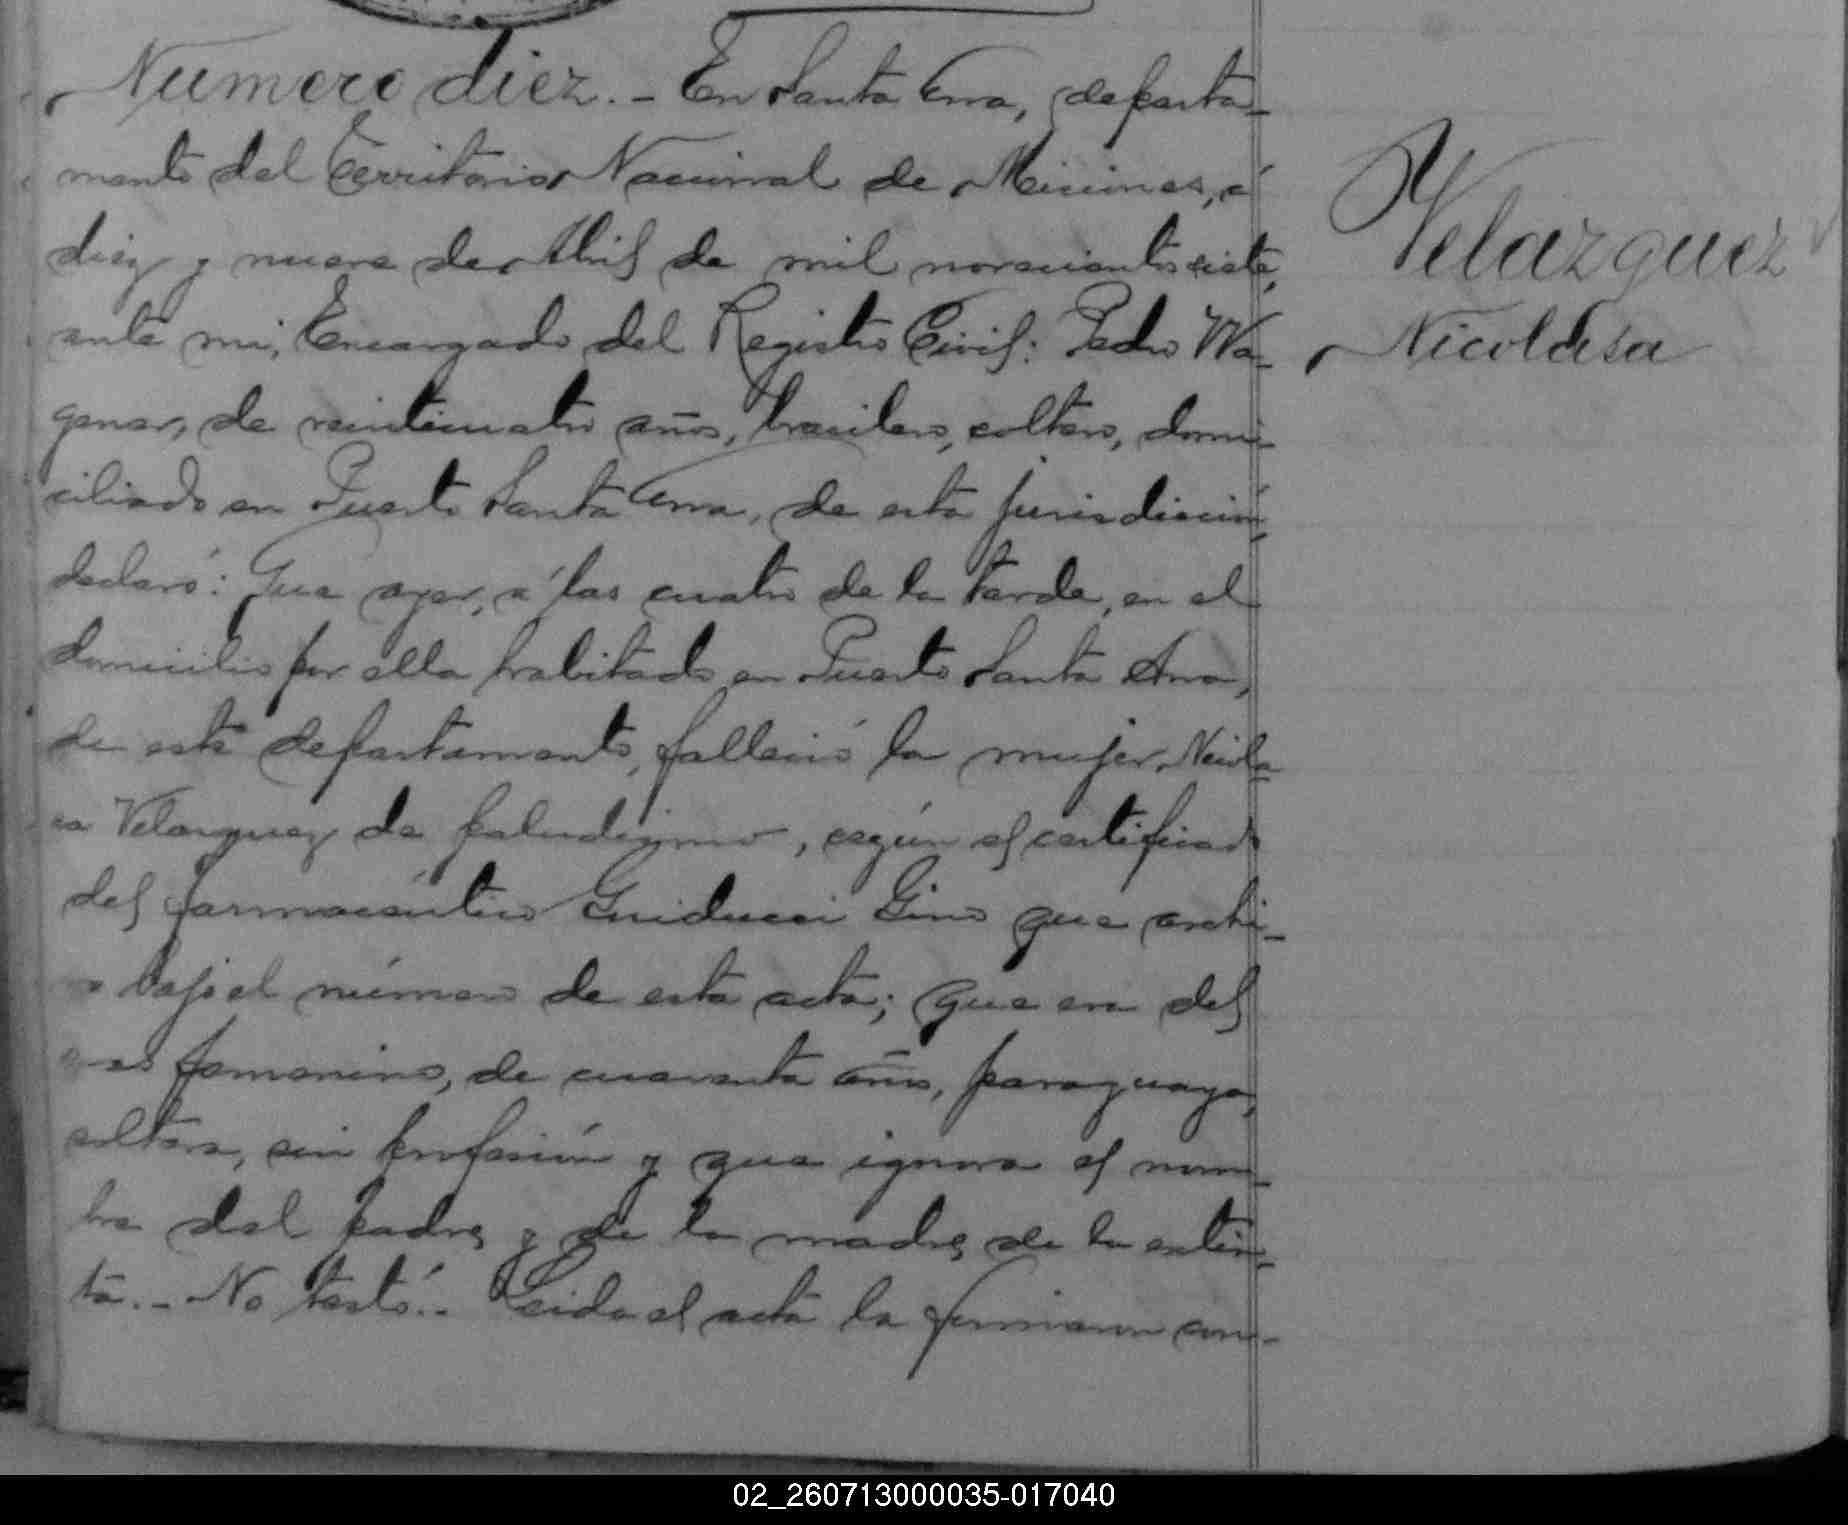 Numero diez.- En Santa Ana, departa-
mento del Territorio Nacional de Misiones, á
diez y nueve de Abril de mil novecientos siete,
ante mi, Encargado del Registro Civil: Pedro Wa-
gener, de veinticuatro años, brasilero, soltero, domi-
ciliado en Puerto Santa Ana, de esta jurisdicción,
declaró: Que ayer, á las cuatro de la tarde, en el
domicilio por ella habitado en Puerto Santa Ana,
de este departamento, falleció la mujer Nicola-
sa Velazquez de paludismo, según el certificado
del farmacéutico Guiducci Gino que archi-
vo bajo el número de esta acta; que era del
sexo femenino, de cuarenta años, paraguaya,
soltera, sin profesión y que ignora el nom-
bre del padre y de la madre de la extin-
ta.- No testó.- Leida el acta la firmaron con-
Velazquez
Nicolasa
02_260713000035-017040